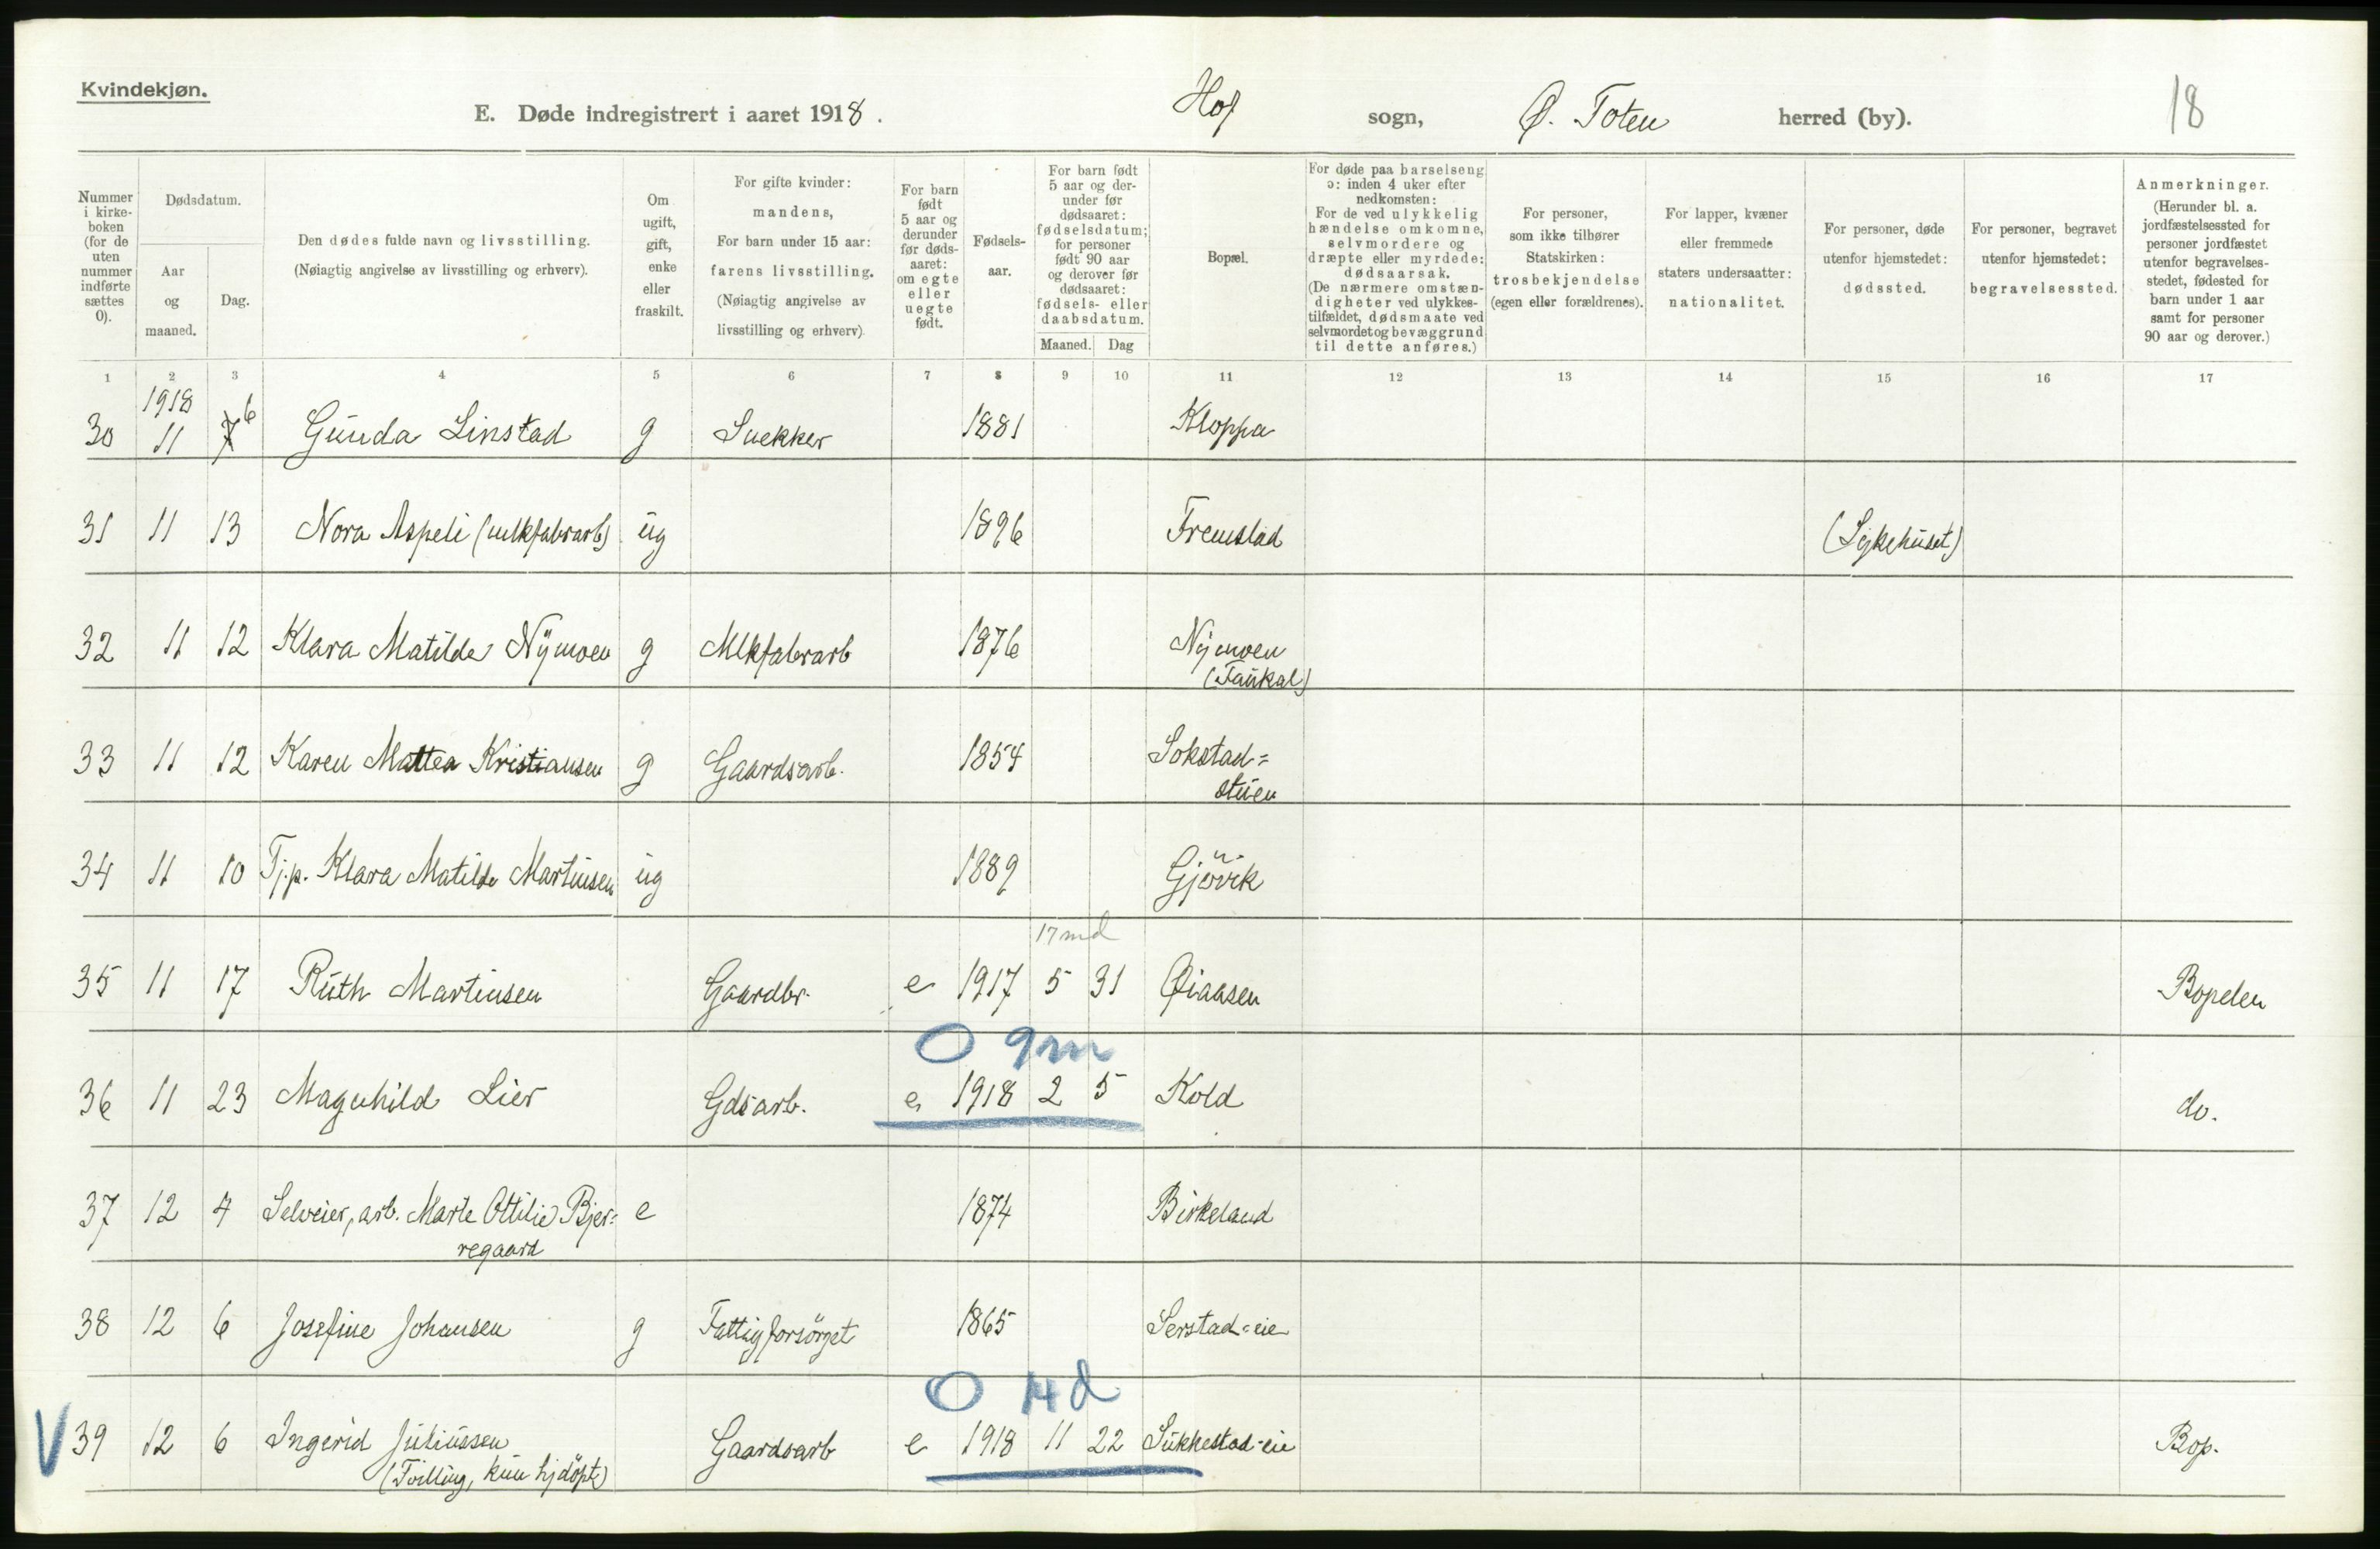 Kvindekjøn.
E. Døde indregistrert i aaret 1918. Hof sogn, Ø. Toten herred (by). 18
Nummer
i kirke-
boken
(for de
uten
nummer
indførte
sættes
0).
Dødsdatum.
Aar
og
maaned.
Dag.
Den dødes fulde navn og livsstilling.
(Nøiagtig angivelse av livsstilling og erhverv).
Om
ugift,
gift,
enke
eller
fraskilt.
For gifte kvinder:
mandens,
For barn under 15 aar:
farens livsstilling.
(Nøiagtig angivelse av
livsstilling og erhverv)
For barn
født
5 aar og
derunder
før døds-
aaret:
om egte
eller
uegte
født.
Fødsels-
aar.
For barn født
5 aar og der-
under før
dødsaaret:
fødselsdatum;
for personer
født 90 aar
og derover før
dødsaaret:
fødsels- eller
daabsdatum.
Maaned. Dag
Bopæl.
For døde paa barselseng
ɔ: inden 4 uker efter
nedkomsten:
For de ved ulykkelig
hændelse omkomne,
selvmordere og
dræpte eller myrdede:
dødsaarsak.
(De nærmere omstæn-
digheter ved ulykkes-
tilfældet, dødsmaate ved
selvmordet og bevæggrund
til dette anføres.)
For personer,
som ikke tilhører
Statskirken:
trosbekjendelse
(egen eller forældrenes).
For lapper, kvæner
eller fremmede
staters undersaatter:
nationalitet.
For personer, døde
utenfor hjemstedet:
dødssted.
For personer, begravet
utenfor hjemstedet:
begravelsessted.
Anmerkninger.
(Herunder bl. a.
jordfæstelsessted for
personer jordfæstet
utenfor begravelses-
stedet, fødested for
barn under 1 aar
samt for personer
90 aar og derover.)
1 2 3 4 5 6 7 8 9 10 11 12 13 14 15 16 17
1918
30 11 7 6 Gunda Linstad g Snekker 1881 Kloppa
31 11 13 Nora Aspeli (mlkfabrarb) ug 1896 Fremstad (Sykehuset)
32 11 12 Klara Matilde Nymoen g Mlkfabrarb 1876 Nymoen
(Faukal)
33 11 12 Karen Mattea Kristiansen g Gaardsarb. 1854 Sokstad=
stuen
34 11 10 Tj.p. Klara Matilde Martinsen ug 1889 Gjövik
17 md
35 11 17 Ruth Martinsen Gaardbr. e 1917 5 31 Øiaasen Bopelen
0 9m
36 11 23 Magnhild Lier Gdsarb. e 1918 2 5 Kold do.
37 12 4 Selveier, arb. Marte Ottilie Bjer= e 1874 Birkeland
regaard
38 12 6 Josefine Johansen g Fattigforsörget 1865 Serstad=eie
0 14 d
V 39 12 6 Ingerid Juliussen Gaardsarb e 1918 11 22 Sukkestad=eie Bop.
(Tvilling, kun hjdöpt)